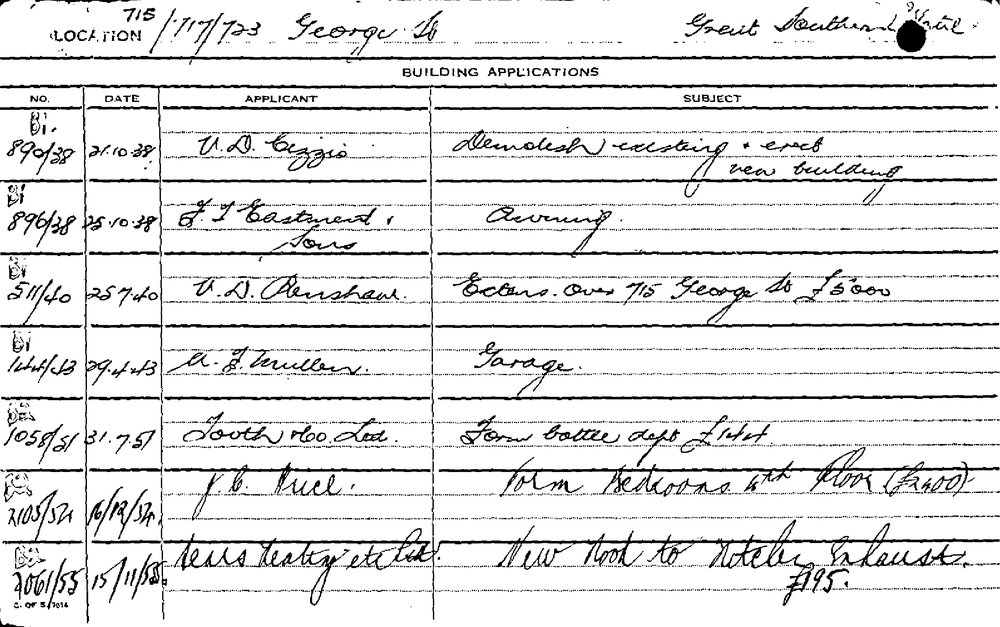 715
LOCATION /717/723 George St Great Southern Hotel
BUILDING APPLICATIONS
NO. DATE APPLICANT SUBJECT
Bi.
890/38 21.10.38 V. D. Cizzio Demolish existing + erect
new building
Bi
896/38 25.10.38 F. T Eastment + Awning.
Sons
Bi
511/40 25 7.40 V. D. Renshaw. Extens. Over 715 George St £5000
Bi
144/43 29.4.43 Garage.
1058/51 31.7.51 Tooth & Co. Ltd. Form bottle dept £144
2105/54 16/12/54. J. C. Price. Form Bedrooms 4th Floor (£2400)
2061/55 15/11/55. etc Ltd. New Hood to Exhaust.
£195.
C. OF S. 7014